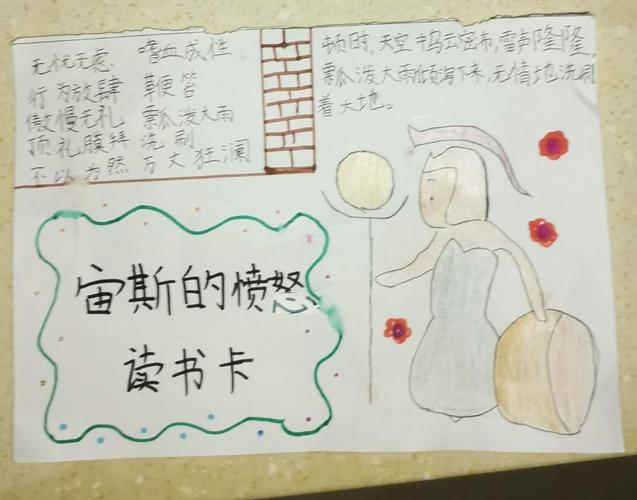 无忧无虑 嗜血成性
行为放肆 鞭笞
傲慢无礼 瓢泼大雨
顶礼膜拜 洗刷
不以为然 万丈狂澜
顿时,天空中乌云密布,雷声隆隆,
瓢泼大雨倾泻下来,无情地洗刷
着大地。
宙斯的愤怒
读书卡